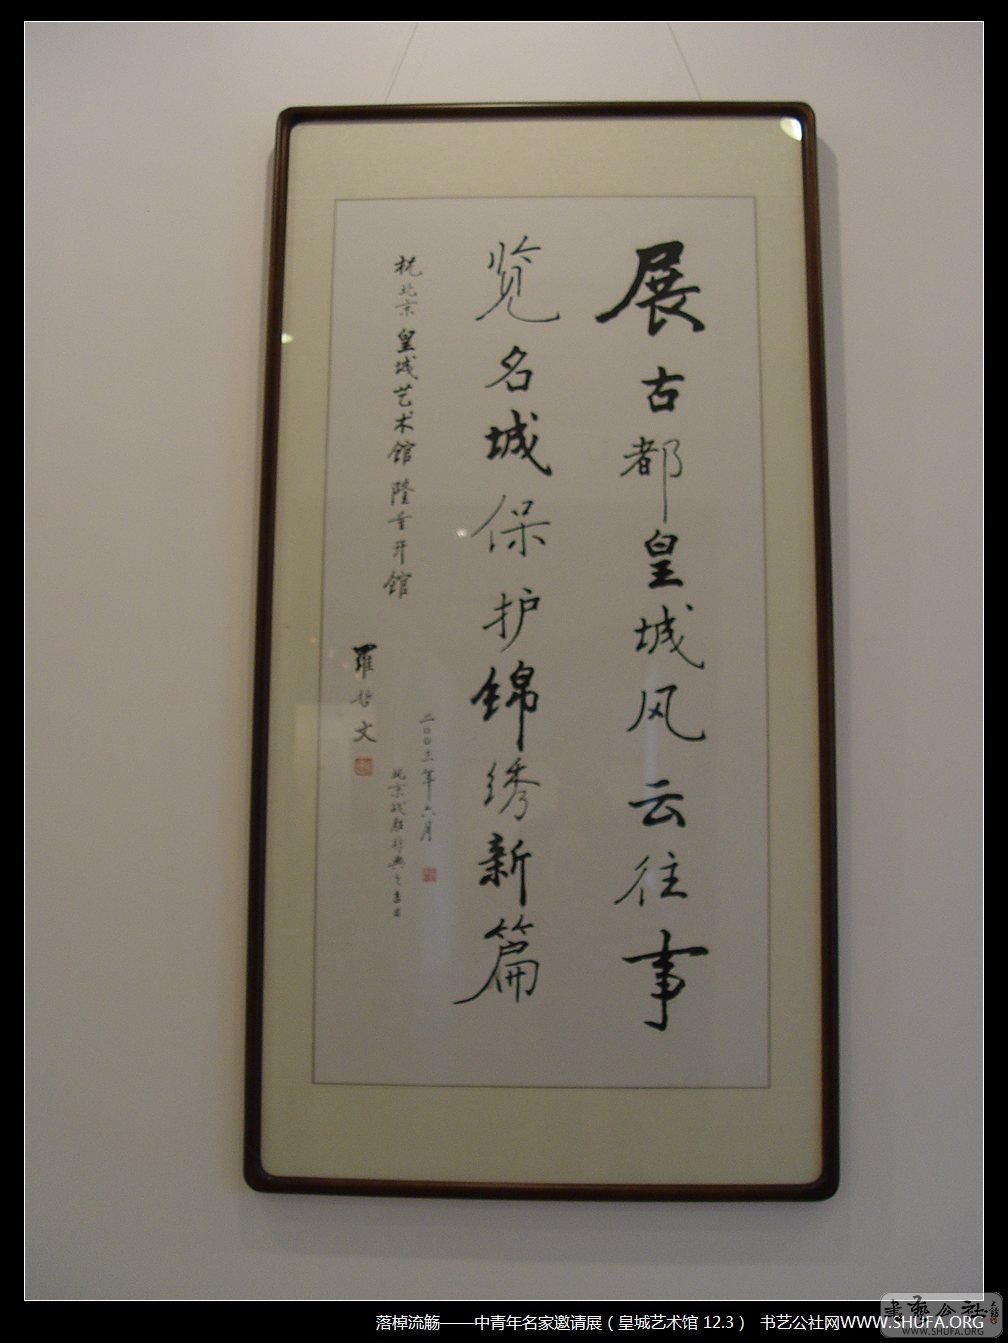 展古都皇城风云往事
览名城保护锦绣新篇
祝北京皇城艺术馆隆重开馆
羅哲文
二〇〇三年六月
北京战胜非典之吉日
落棹流觞——中青年名家邀请展(皇城艺术馆 12.3) 书艺公社网WWW.SHUFA.ORG
書艺公社
WWW.SHUFA.ORG